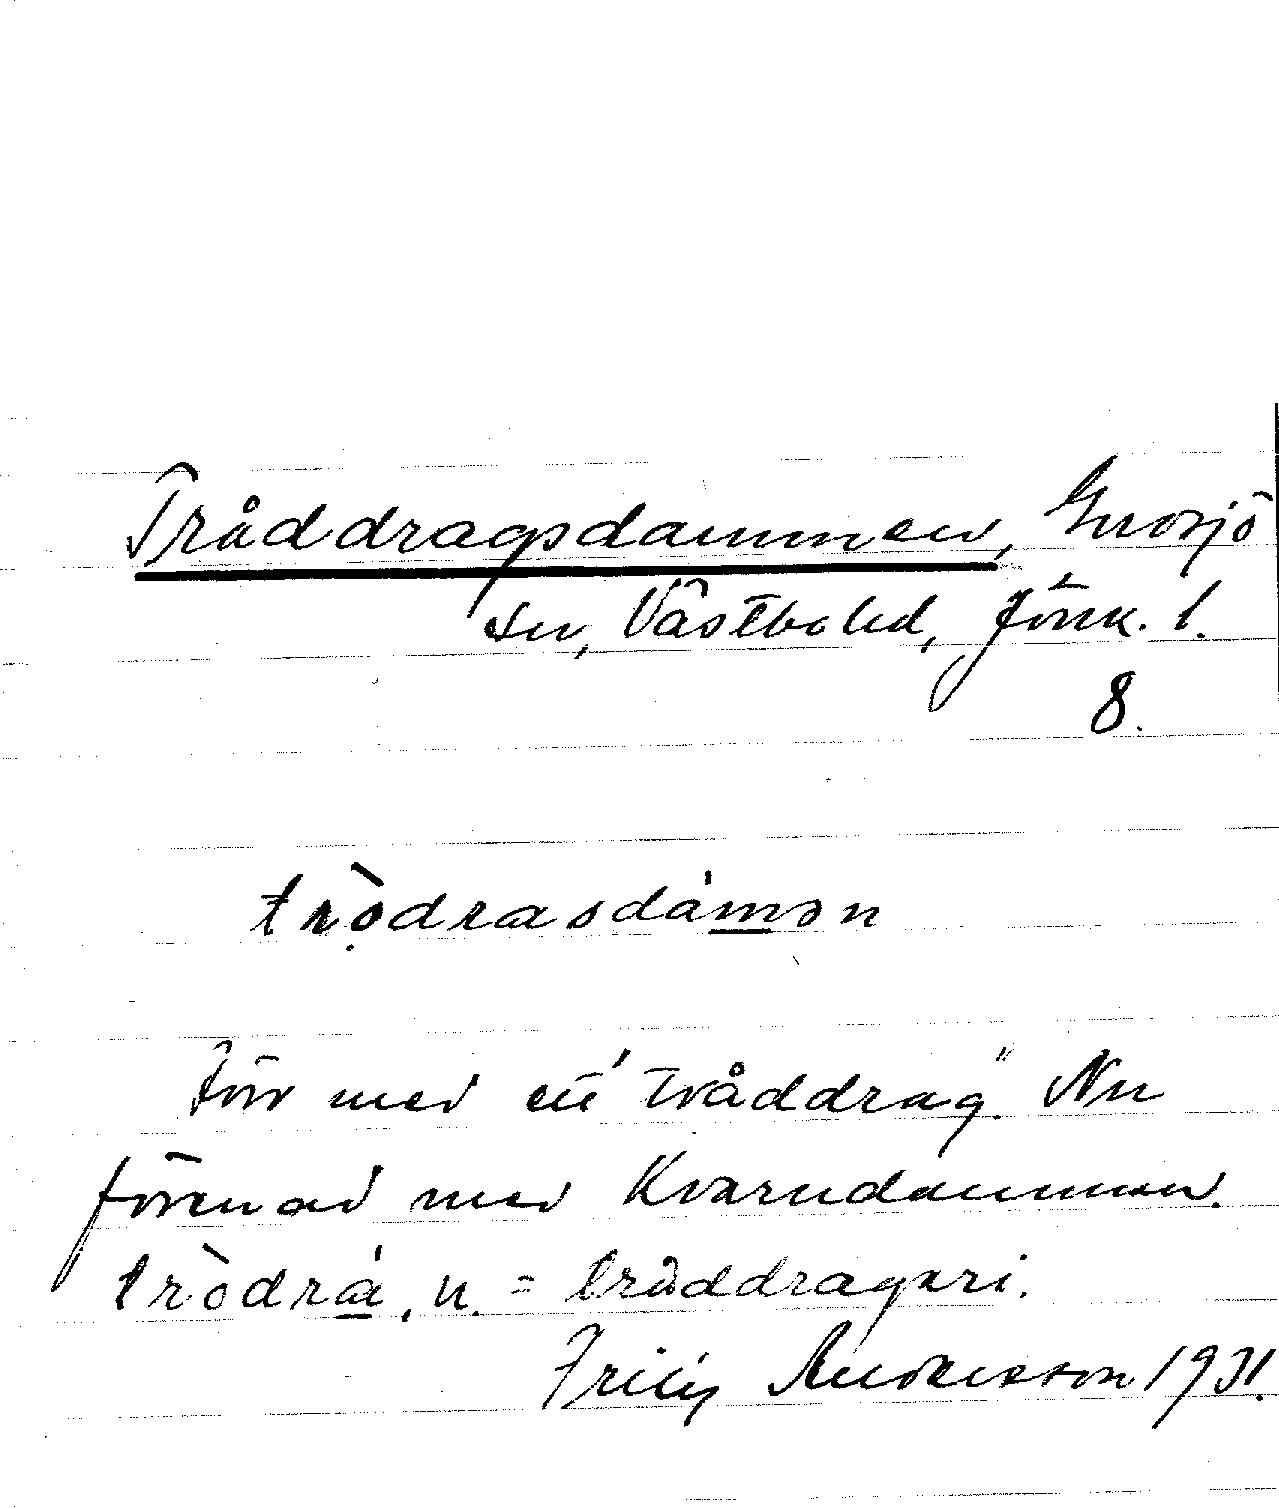 Tråddragsdammen, Gnosjö
sn, Västbo hd, Jönk. l.
8.
trò̤drasdámən
Förr med ett "tråddrag". Nu
förenad med Kvarndammen.
tròdrá, n. = tråddrageri.
Fritz Andersson 1931.